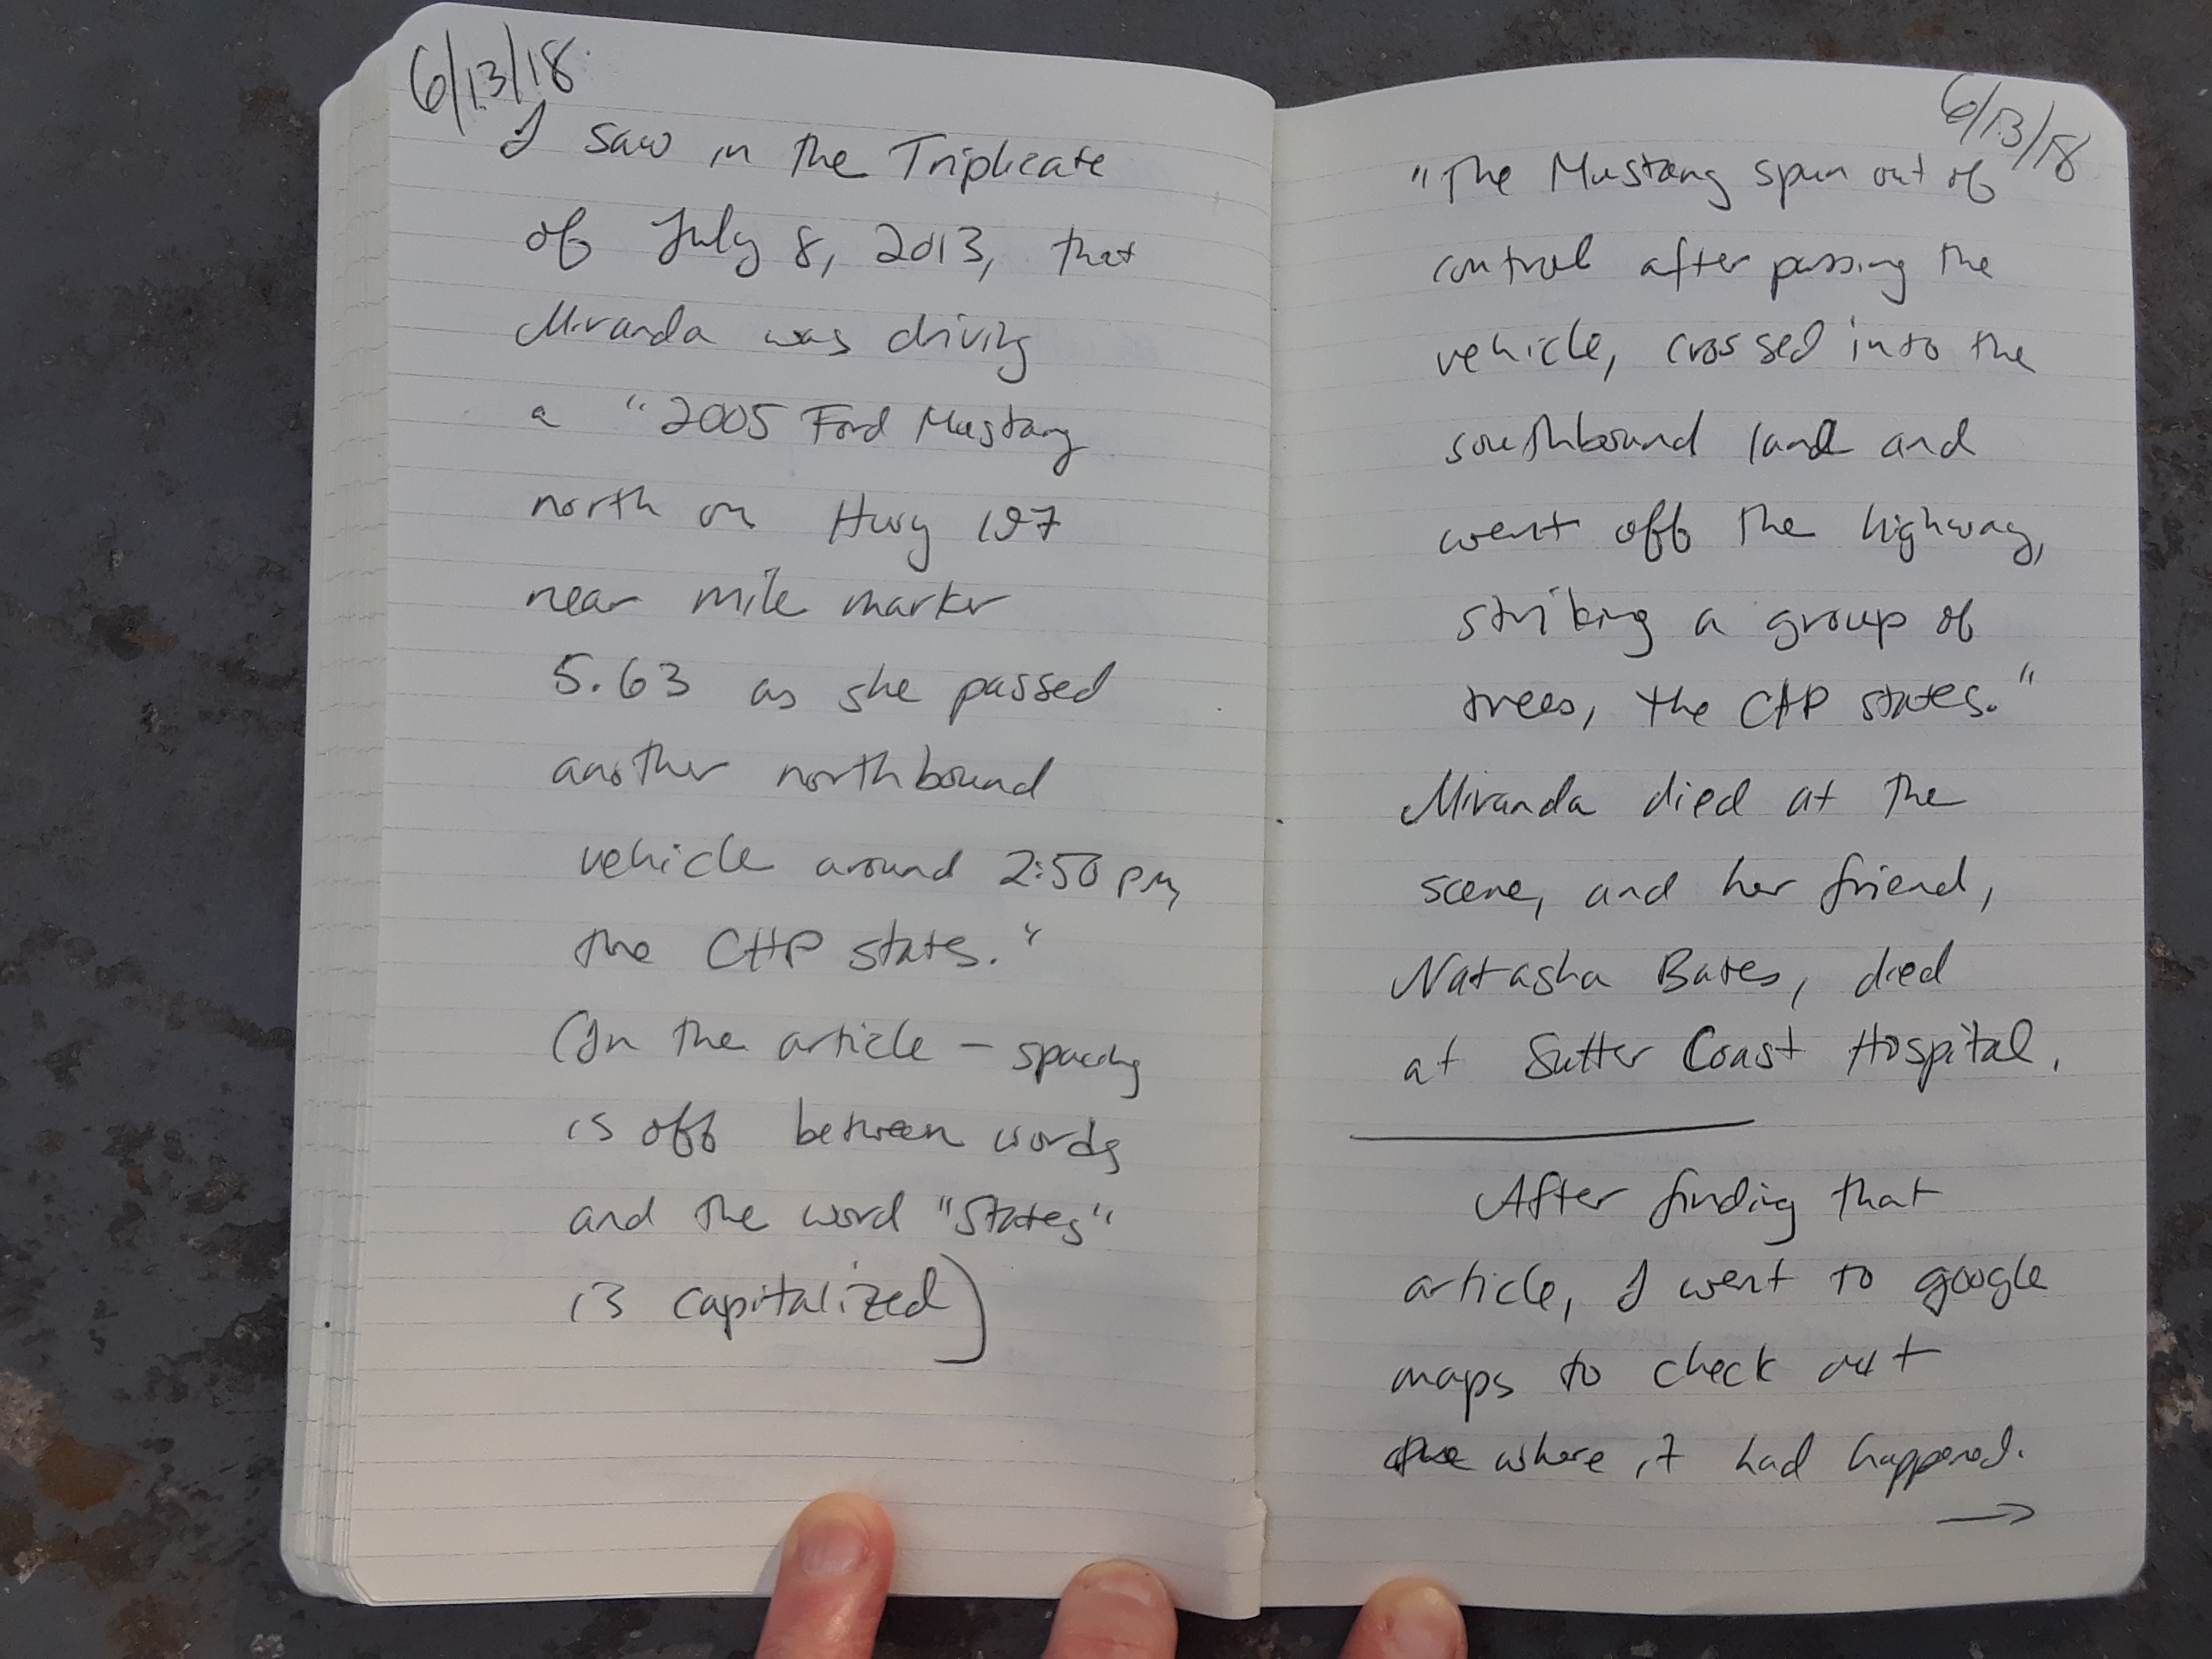 6/13/18
I saw in the Triplicate
of July 8, 2013, that
Miranda was driving
a "2005 Ford Mustang
north on Hwy 197
near mile marker
5.63 as she passed
another northbound
vehicle around 2:50 pm,
the CHP states."
(In the article – spacing
is off between words
and the word "States"
is capitalized)
6/13/18
"The Mustang spun out of
control after passing the
vehicle, crossed into the
southbound land and
went off the highway,
striking a group of
trees, the CHP states."
Miranda died at the
scene, and her friend,
Natasha Bates, died
at Sutter Coast Hospital.
After finding that
article, I went to google
maps to check out
where it had happened.
→